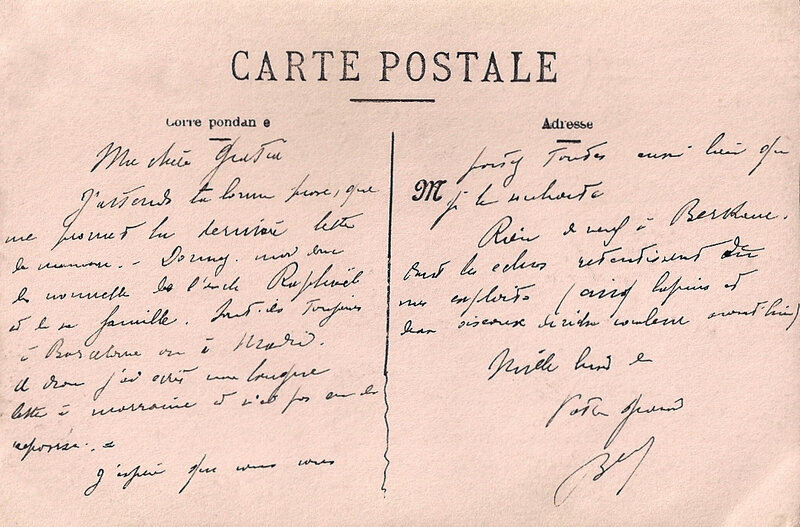 CARTE POSTALE
Corre pondan e
Ma chère
J'attends ta bonne prose, que
me promet la dernière lettre
de maman. - Donnez-moi donc
des nouvelles de l'oncle Raphaël
et de sa famille. Sont-ils toujours
à Barcelone ou à Madrid.
j'ai écrit une longue
lettre à marraine et n'ai pas eu de
réponse. -
J'espère que vous vous
Adresse
M
portez toutes aussi bien que
je le souhaite
Rien de neuf à Berkane.
dont les échos retentissent
mes exploits (cinq lapins et
deux oiseaux
Mille
Votre grand